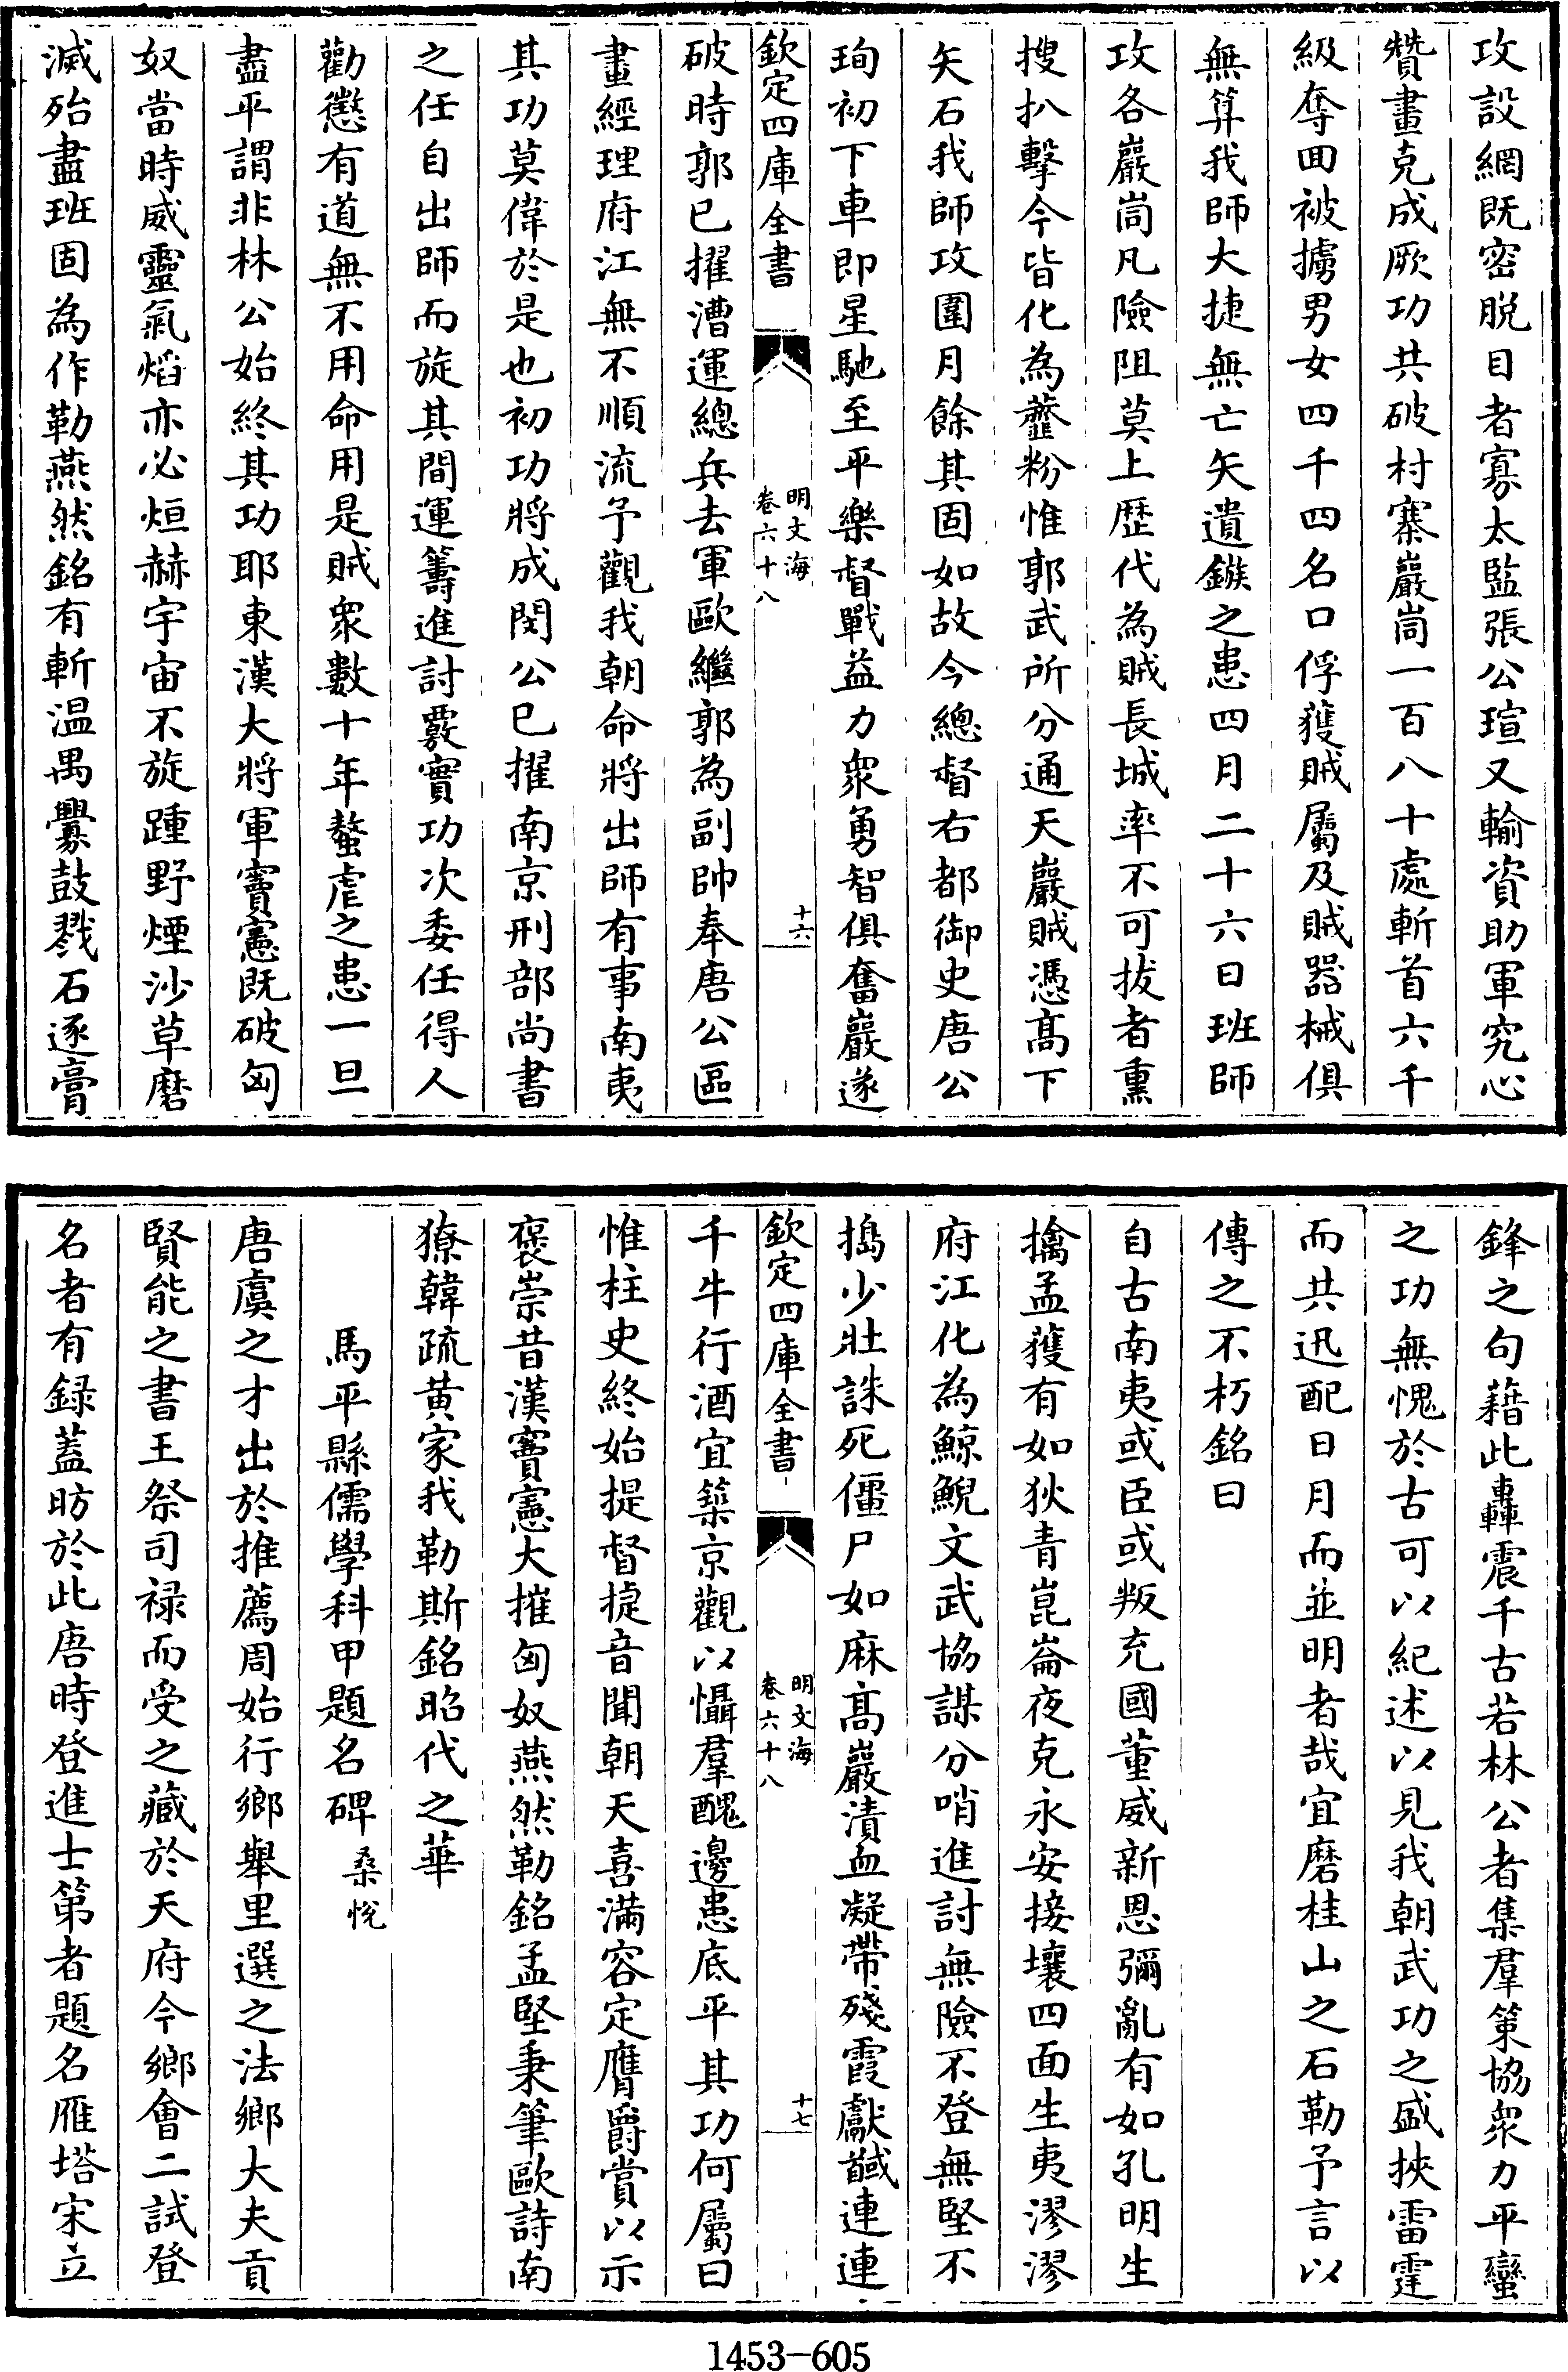 攻設網既密脫目者寡太監張公瑄又輸資助軍究心
贊畫克成厥功共破村寨巖峝一百八十處斬首六千
級奪回被擄男女四千四名口俘獲賊屬及賊器械俱
無算我師大捷無亡矢遺鏃之患四月二十六日班師
攻各巖峝凡險阻莫上歴代為賊長城率不可拔者熏
搜扒擊今皆化為虀粉惟郭武所分通天巖賊憑高下
矢石我師攻圍月餘其固如故今總督右都御史唐公
珣初下車即星馳至平樂督戰益力衆勇智俱奮巖遂
欽定四庫全書
明文海
卷六十八
十六
破時郭已擢漕運總兵去軍歐繼郭為副帥奉唐公區
畫經理府江無不順流予觀我朝命將出師有事南夷
其功莫偉於是也初功將成閔公已擢南京刑部尚書
之任自出師而旋其間運籌進討覈實功次委任得人
勸懲有道無不用命用是賊衆數十年螯虐之患一旦
盡平謂非林公始終其功耶東漢大將軍竇憲既破匈
奴當時威靈氣焰亦必烜赫宇宙不旋踵野煙沙草磨
滅殆盡班固為作勒燕然銘有斬温禺釁鼓戮石逐膏
鋒之句藉此轟震千古若林公者集羣策協衆力平蠻
之功無愧於古可以紀述以見我朝武功之盛挾雷霆
而共迅配日月而並明者哉宜磨桂山之石勒予言以
傳之不朽銘曰
自古南夷或臣或叛充國董威新恩彌亂有如孔明生
擒孟獲有如狄青崑崙夜克永安接壤四面生夷漻漻
府江化為鯨鯢文武協謀分哨進討無險不登無堅不
搗少壯誅死僵尸如麻高巖漬血凝帶殘霞獻馘連連
欽定四庫全書
明文海
卷六十八
十七
千牛行酒宜築京觀以懾羣醜邊患底平其功何屬曰
惟柱史終始提督捷音聞朝天喜滿容定膺爵賞以示
褒崇昔漢竇憲大摧匈奴燕然勒銘孟堅秉筆歐詩南
獠韓疏黄家我勒斯銘昭代之華
馬平縣儒學科甲題名碑 桑悅
唐虞之才出於推薦周始行鄉舉里選之法鄉大夫貢
賢能之書王祭司禄而受之藏於天府今鄉會二試登
名者有録蓋昉於此唐時登進士第者題名雁塔宋立
1453-605